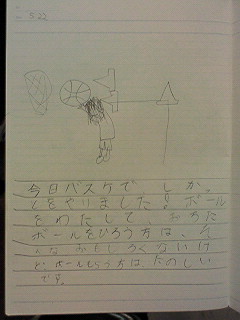 5.22
今日バスケで、しか、
くをやりました。ボール
をわたして、おちた
ボールをひろう方は、そ
んなおもしろくないけ
ど、ボールもらう方は、たのしい
です。